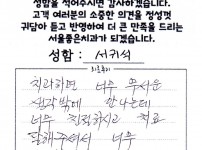 성함을 적어주시면 감사하겠습니다.
고객 여러분의 소중한 의견을 정성껏
귀담아 듣고 반영하여 더 큰 만족을 드리는
서울좋은치과가 되겠습니다.
성함 : 서귀석
치과하면 너무 무서운
생각밖에 안나는데
너무 친절하시고 치료
잘해주셔서 너무